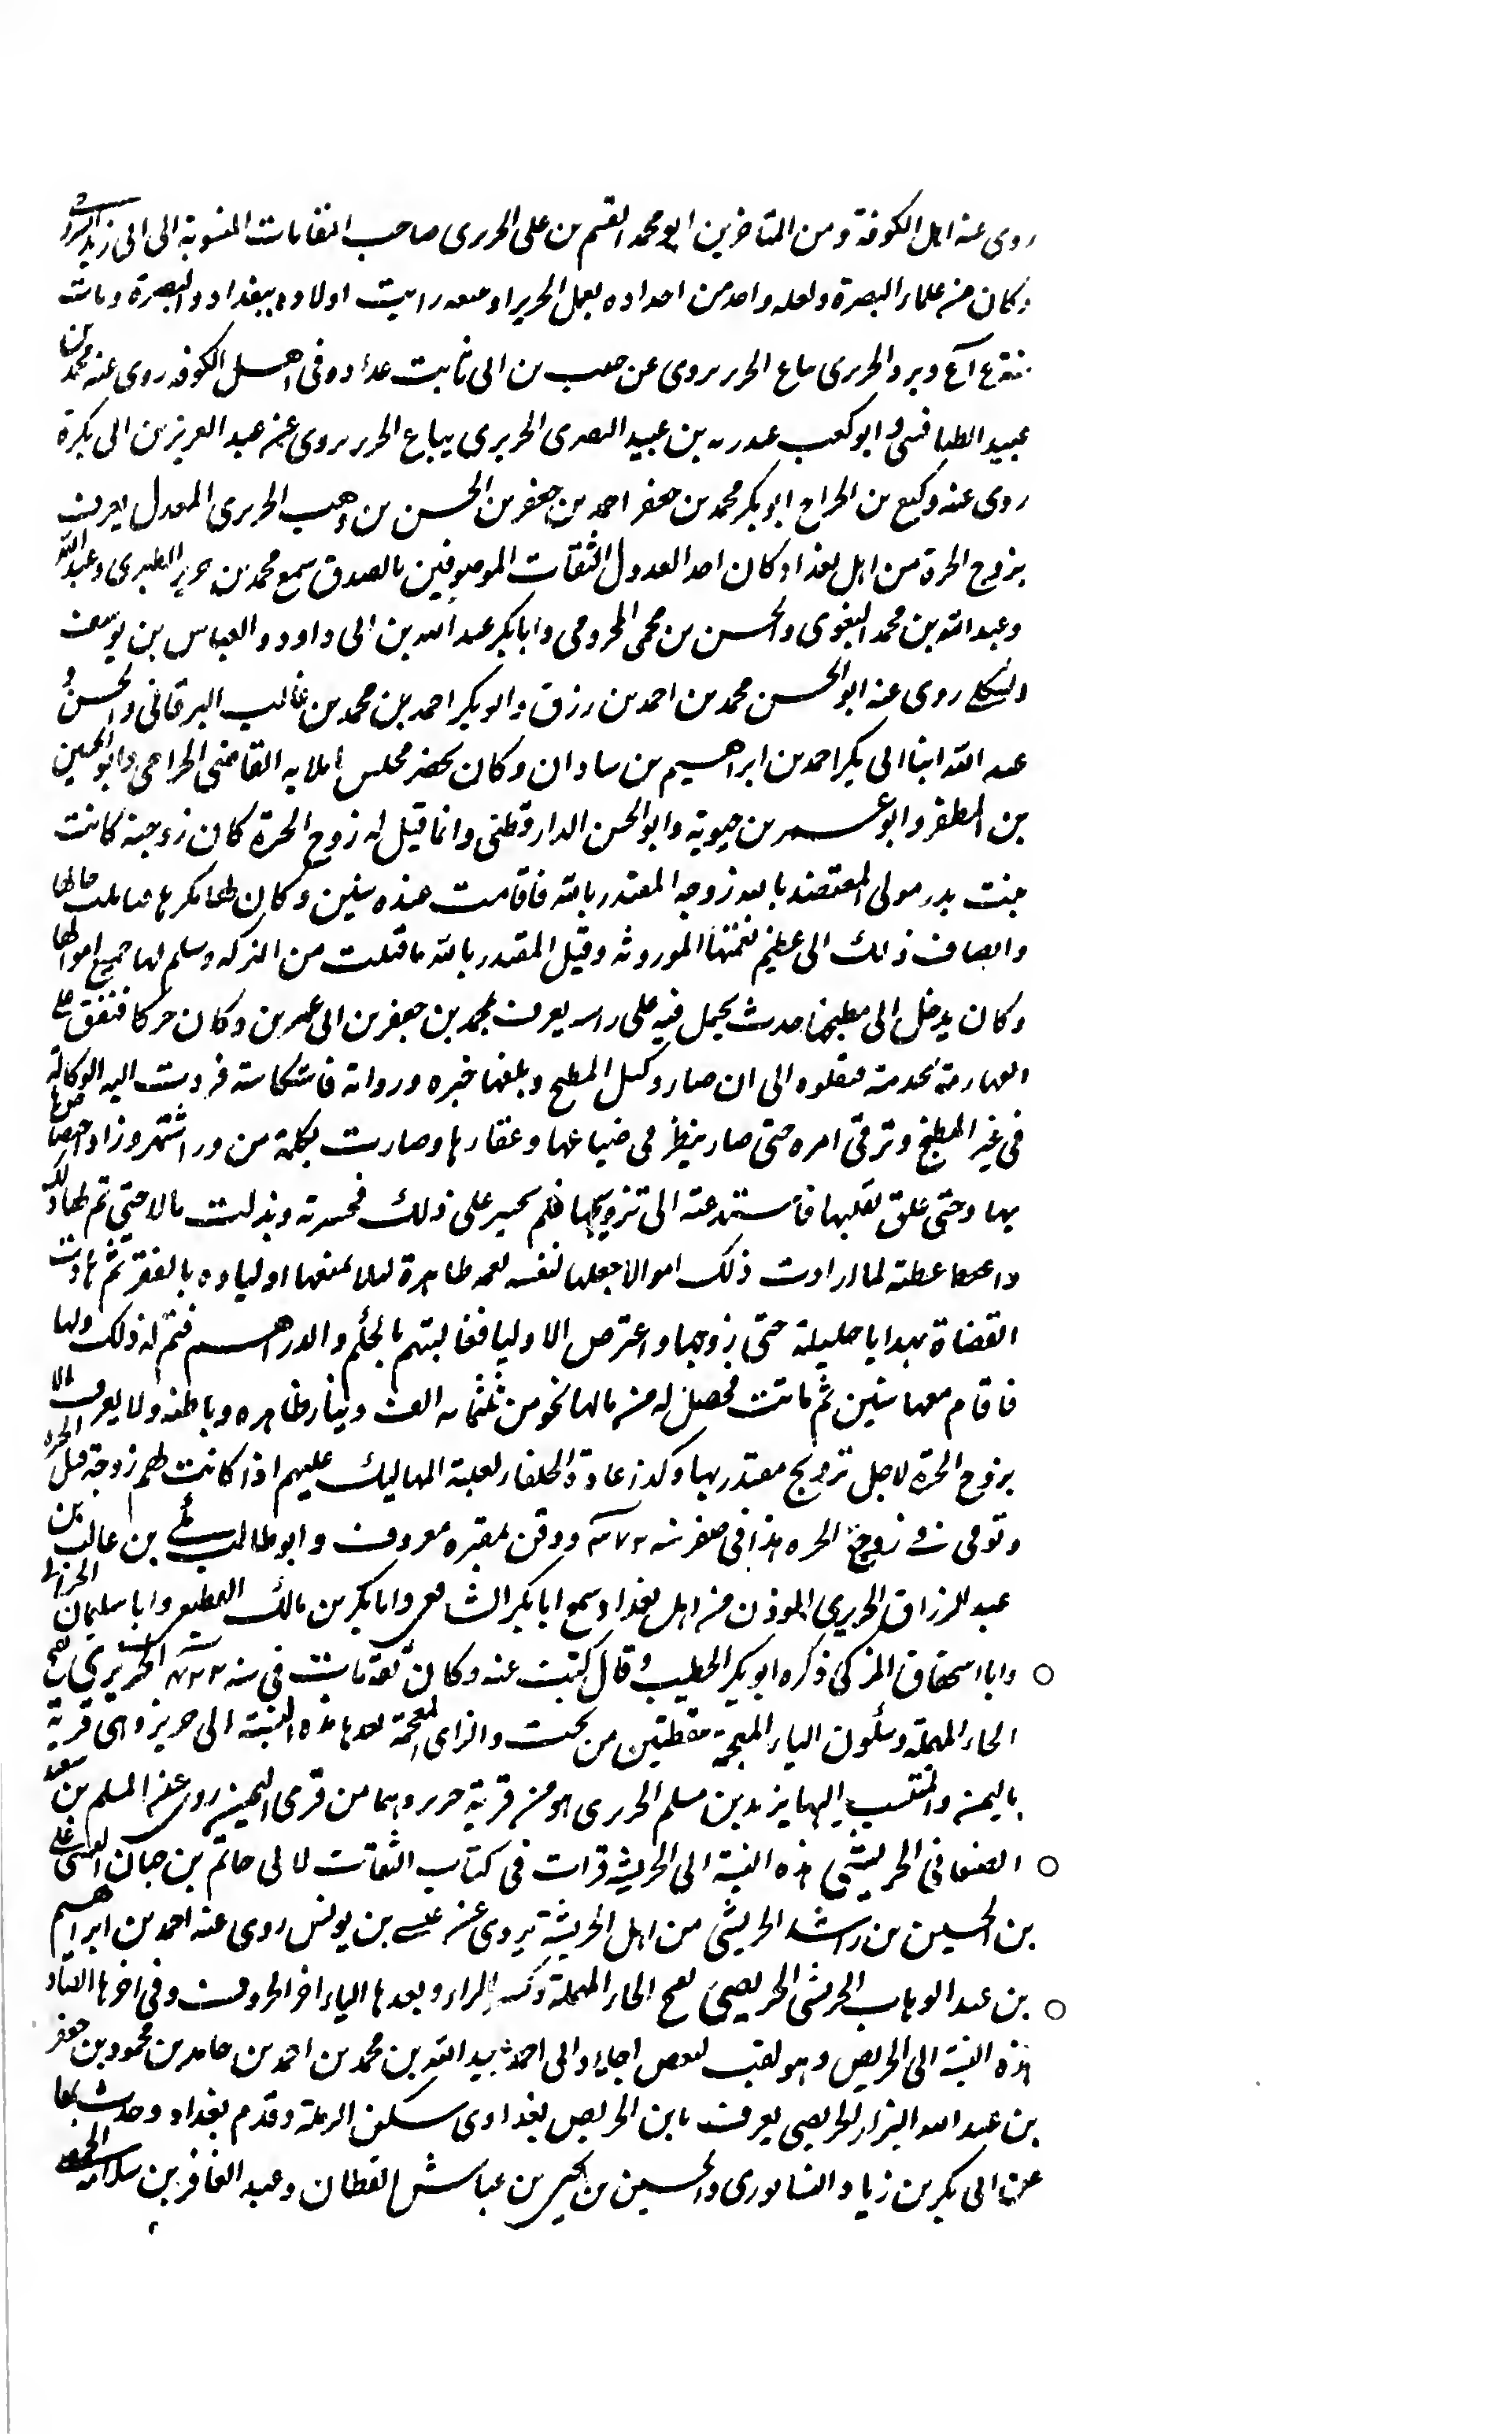 روى عنه اهل الكوفة ومن المتاخرين ابو محمد القسم بن على الحريرى صاحب المقامات المنسوبة الى ابى زيد السروجى
وكان من علماء البصرة ولعله واحد من اجداده يعمل الحرير او يبيعه رايت اولاده ببغداد والبصرة ومات
وبرد الحريرى بياع الحرير يروى عن حبيب بن ابى ثابت عداده فى اهل الكوفه روى عنه محمد بن
عبيد الطيافسى وابو كعب عبد ربه بن عبيد البصرى الحريرى بياع الحرير يروى عنه عبد العزيز بن ابى بكرة
روى عنه وكيع بن الجراح ابو بكر محمد بن جعفر احمد بن جعفر بن الحسن بن وهب الحريرى المعدل يعرف
بزوج الحرة من اهل بغداد كان احد العدول الثقات الموصوفين بالصدق سمع محمد بن جرير الطبرى وعبد الله
وعبد الله بن محمد البغوى والحسن بن محمى المخرومى وابا بكر عبد الله بن ابى داود والعباس بن يوسف
والشكلى روى عنه ابو الحسن محمد بن احمد بن رزق وابو بكر احمد بن محمد بن غالب البرقانى والحسن و
عبد الله ابنا ابى بكر احمد بن ابراهيم بن سادان وكان يحضر مجلس املايه القاضى الجراحى وابو الحسين
بن المظفر وابو عمر بن حيوية وابو الحسن الدارقطنى وانما قيل له زوج الحرة كان زوجته كانت
بنت بدر مولى المعتضد بالله زوجه المقتدر بالله فاقامت عنده سنين وكان لها مكرها
وانضاف ذلك الى عظيم نعمتها الموروثه وقيل المقتدر بالله ما قتلت من التركه وسلم لها جميع اموالها
وكان يدخل الى مطبخها حدث يحمل فيه على راسه يعرف بمحمد بن جعفر بن ابى عمر بن وكان حركا فنفق على
القهارمة بخدمته فنقلوه الى ان صار وكيل المطبخ وبلغها خبره وروانه فاستكاسته فردت اليه الوكالة
فى غير المطبخ وترقى امره حتى صار ينظر فى ضياعها وعقارها وصارت بكلمة من ورا الستر وزاد اختصاصه
بها وحتى علق بقلبها فاستدعته الى تزويجها فلم يجسر على ذلك فجسرته وبذلت مالا حتى تم لها ذلك
واعطا عطته لما ارادت ذلك اموالا جعلها لنفسه نعمه ظاهرة ليلا يمنعها اولياوه بالفقر ثم هادت
القضاة بهدايا جليلة حتى زوجها واعترض الاوليا فغالبتهم بالحكم والدراهم فتم له ذلك ولها
فاقام معها سنين ثم ماتت فحصل له من مالها نحو من ثلثمايه الف دينار ظاهره وباطنه ولا يعرف الا
بزوج الحرة لاجل تزويج مقتدر بها وكذا عادة الخلفاء لغلبة المماليك عليهم اذا كانت لهم زوجة قيل الحرة
وتوفى زوج الحره هذا فى صفر سنه ودفن بمقبره معروف وابو طالب على بن غالب بن
عبد الرزاق الحريرى الموذن من اهل بغداد سمع ابا بكر الشافعى وابا بكر بن مالك القطيعى وابا سليمان الحرانى
وابا اسحاق المزكى ذكره ابو بكر الخطيب وقال كتبت عنه وكان ثقة مات فى سنه الحريزى بفتح
الحاء المهملة وسكون الياء المعجمة بنقطتين من تحت والزاى المعجمة بعدها هذه النسبة الى حريز وهى قرية
باليمن والمنتسب اليها يزيد بن مسلم الحريزى هو من قرية حريز وهما من قرى اليمن روى عنه المسلم بن سعيد
الصنعانى الحريشى هذه النسبة الى الحريشة قرات فى كتاب الثقات لابى حاتم بن حبان البستى على
بن الحسين بن راشد الحريشى من اهل الحريشة يروى عن عيسى بن يونس روى عنه احمد بن ابراهيم
بن عبد الوهاب الحريشى الحريصى بفتح الحاء المهملة وكسر الراء وبعدها الياء اخر الحروف وفى اخرها الصاد
هذه النسبة الى الحريص وهو لقب لبعض اجداد ابى احمد عبيد الله بن محمد بن احمد بن حامد بن محمود بن جعفر
بن عبد الله البزار الحريصى يعرف بابن الحريص بغدادى سكن الرملة وقدم بغداد وحدث بها
عن ابى بكر بن زياد النسابورى والحسين بن يحيى بن عباش القطان وعبد الغافر بن سلامة الحمصى